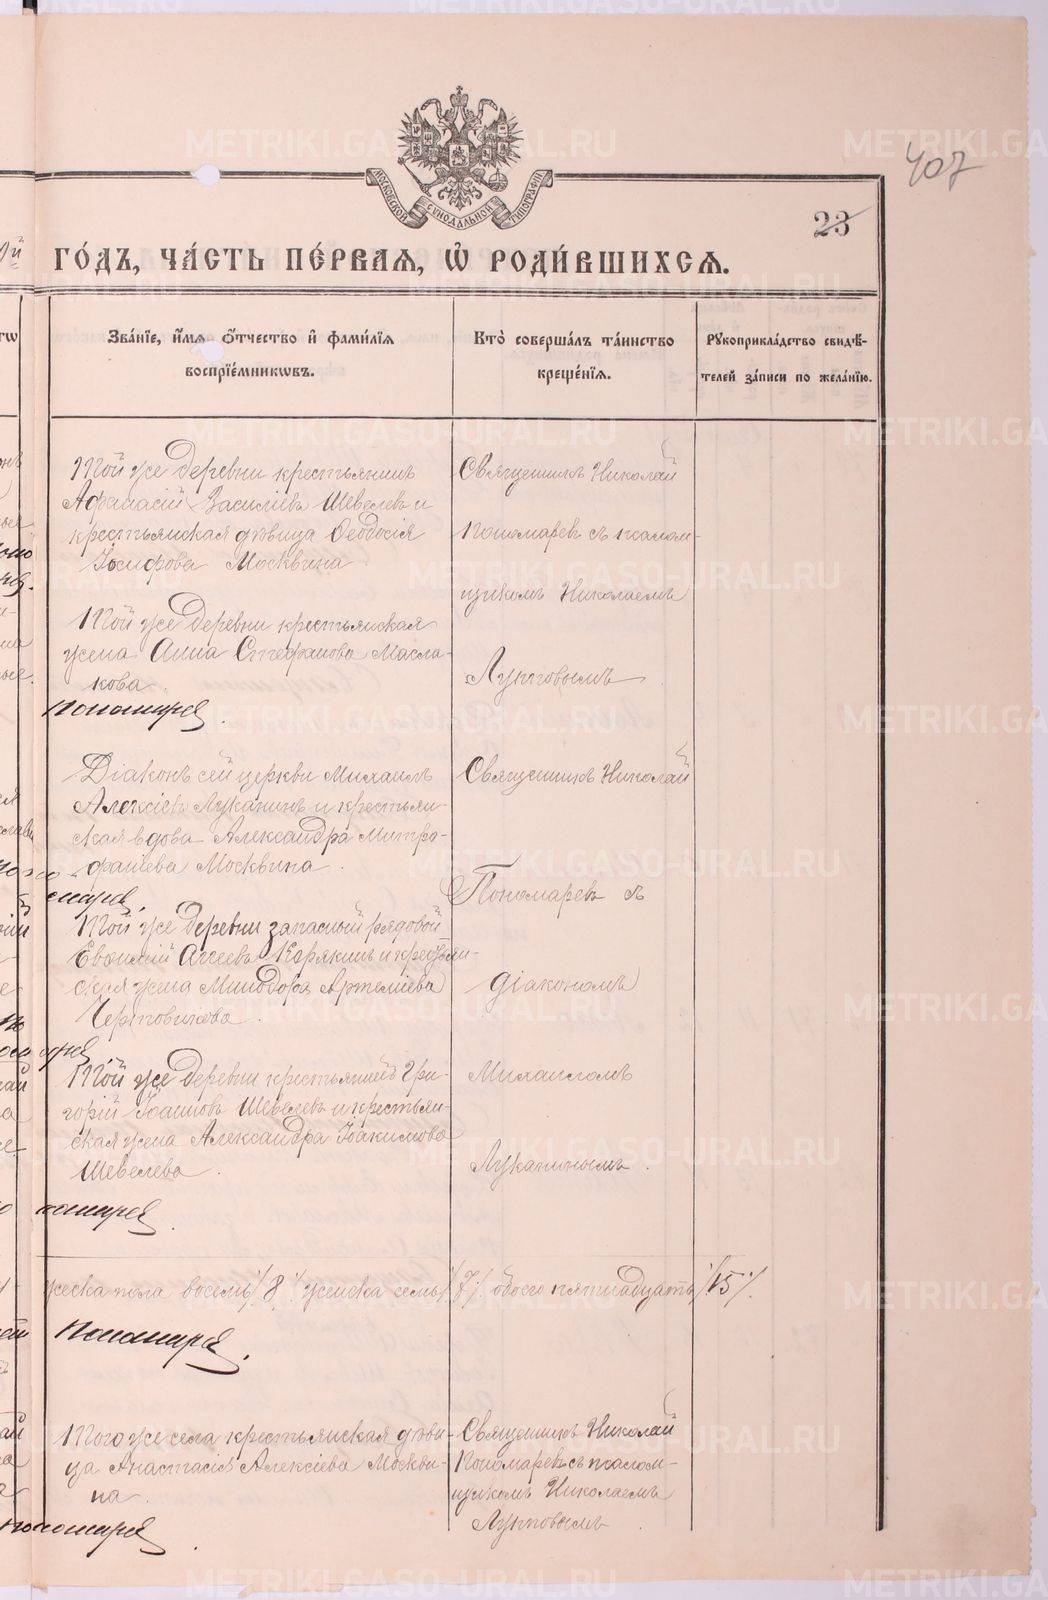 407
МОСКОВСКОЙ СѴНОДАЛЬНОЙ ТИПОГРАФІИ
23
й
ГО́ДЪ, ЧА́СТЬ ПЕ́РВАЯ, Ѡ҆ РОДИ́ВШИХСЯ.
Зва́нїе, и҆́мѧ ѻ҆́тчество и҆ фами́лїѧ
воспрїе́мникѡвъ.
Кто̀ соверша́лъ та́инство
креще́нїѧ.
Рꙋкоприкла́дство свидѣ́-
телей за́писи по жела́нїю.
Той же деревни крестьянинъ
Афанасій Василіевъ Шевелевъ и
крестьянская дѣвица Ѳеодосія
Іосифова Москвина
Священникъ Николай
Пономаревъ съ псалом-
щикомъ Николаемъ
Луптовымъ
Той же деревни крестьянская
жена Анна Стефанова Масла-
кова
Пономарев.
Діаконъ сей церкви Михаилъ
Алексіевъ Луканинъ и крестьян-
ская вдова Александра Митро-
фанiева Москвина.
Священникъ Николай
Пономаревъ съ
діакономъ
Михаиломъ
Луканинымъ.
Той же деревни запасный рядовой
Евѳимій Агѣевъ Корякинъ и крестьян-
ская жена Минодора Артеміева
Чертовикова.
Той же деревни крестьянинъ Гри-
горій Іоанновъ Шевелевъ и крестьян-
ская жена Александра Іоакимова
Шевелева.
жеска пола восемь /8/ женска семь /7/ обоего пятнадцать /15/.
Пономарев.
Того же села крестьянская дѣви-
ца Анастасія Алексіева Москви-
на.
Пономарев.
Священникъ Николай
Пономаревъ съ псалом-
щикомъ Николаемъ
Луптовымъ
METRIKI.GASO-URAL.RU